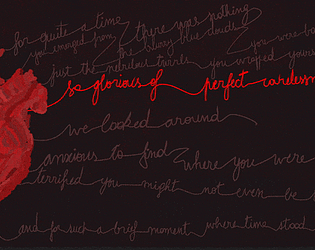 for quite a time there was nothing
you emerged from the blurry blue clouds you were
just the nebulous tunnels you wrapped
so glorious of perfect
we looked around
anxious to find where you were
terrified you might not even be
and for such a brief moment where time stood